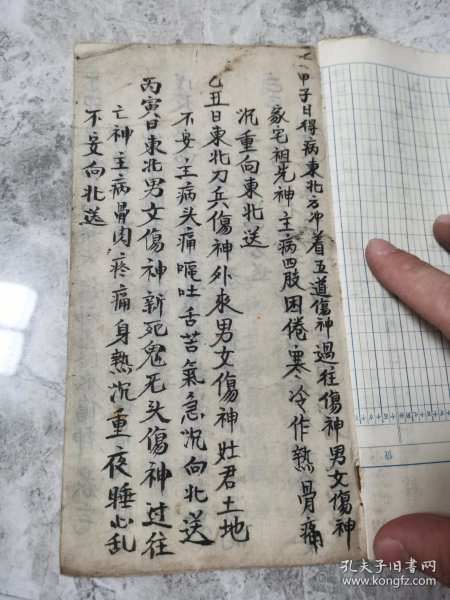 甲子日得病東北方冲着五道傷神過往傷神男女傷神
家宅祖先神主病四肢困倦寒冷作熱骨痛
沉重向東北送
乙丑日東北刀兵傷神外來男女傷神灶君土地
不安主病头痛嘔吐舌苦氣急沉向北送
丙寅日東北男女傷神新死鬼无头傷神过往
亡神主病骨肉疼痛身熱沉重夜睡心乱
不安向北送
孔夫子旧书网
www.kongfz.com